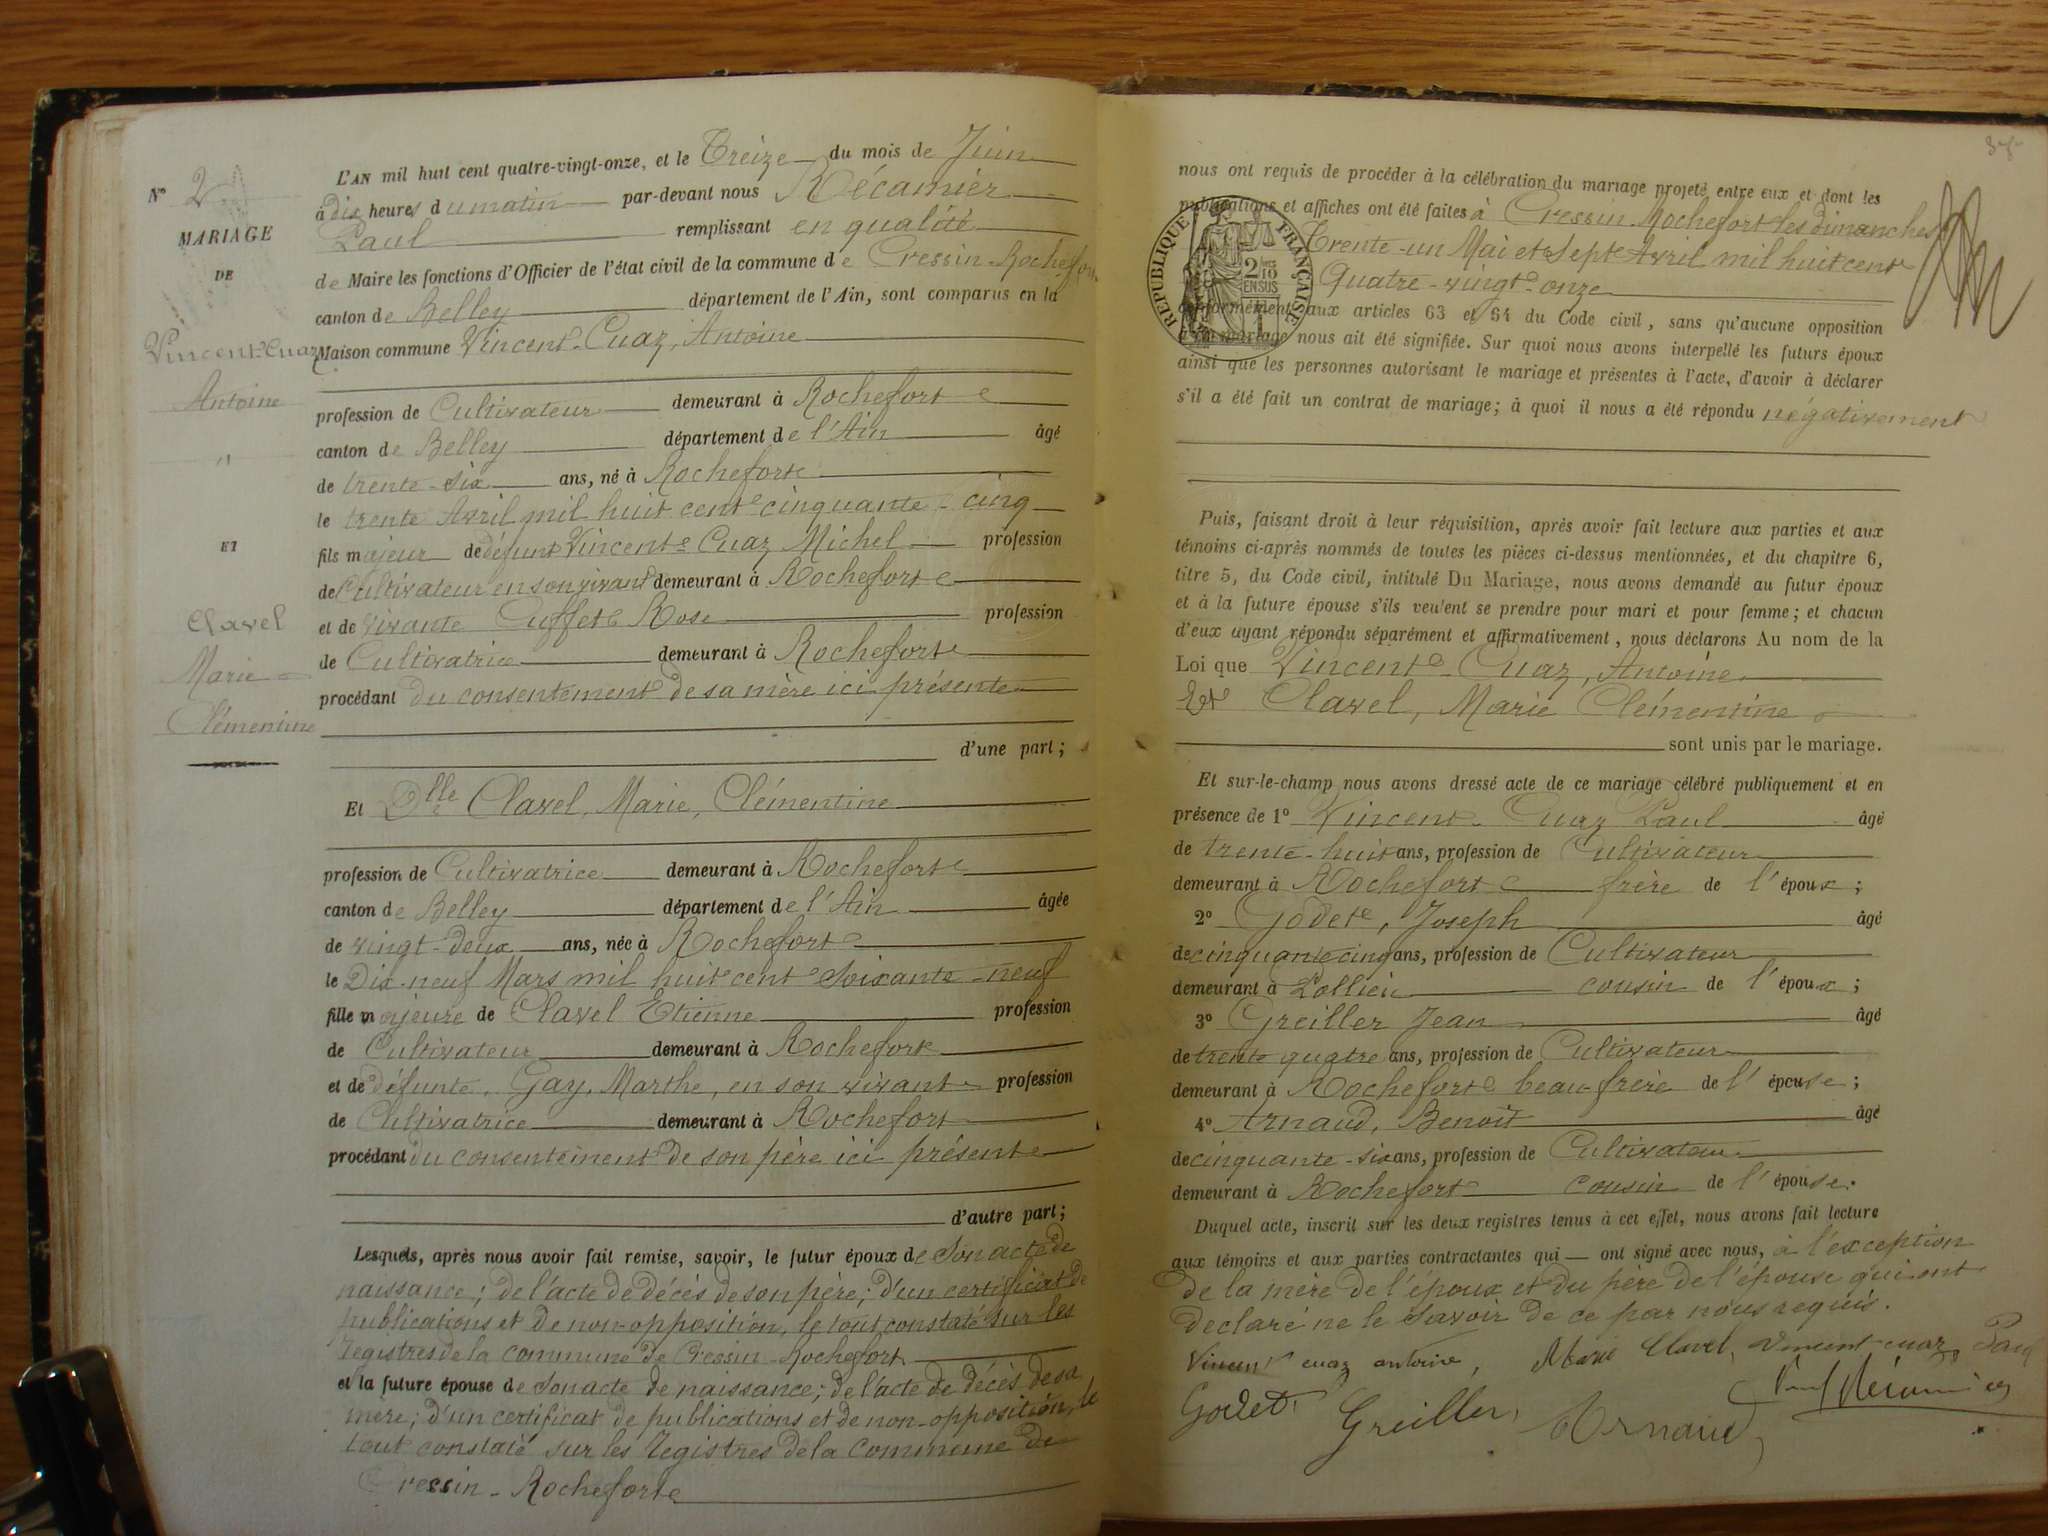 N° 2
MARIAGE
DE
Vincent-Cuaz
Antoine
"
ET
Clavel
Marie
Clémentine
L'AN mil huit cent quatre-vingt-onze, et le Treize du mois de Juin
à dix heures du matin par-devant nous Récamier
Paul remplissant en qualité
de Maire les fonctions d'Officier de l'état civil de la commune de Cressin-Rochefort
canton de Belley département de l'Ain, sont comparus en la
Maison commune Vincent-Cuaz, Antoine
profession de Cultivateur demeurant à Rochefort
canton de Belley département de l'Ain âgé
de trente-six ans, né à Rochefort
le trente Avril mil huit cent cinquante-cinq
fils majeur de défunt Vincent-Cuaz Michel profession
de Cultivateur en son vivant demeurant à Rochefort
et de vivante Cuffet Rose profession
de Cultivatrice demeurant à Rochefort
procédant du consentement de sa mère ici présente
d'une part;
Et Dlle Clavel, Marie, Clémentine
profession de Cultivatrice demeurant à Rochefort
canton de Belley département de l'Ain âgée
de vingt-deux ans, née à Rochefort
le Dix-neuf Mars mil huit cent soixante-neuf
fille majeure de Clavel Etienne profession
de Cultivateur demeurant à Rochefort
et de défunte, Gay, Marthe, en son vivant profession
de Cultivatrice demeurant à Rochefort
procédant du consentement de son père ici présent
d'autre part;
Lesquels, après nous avoir fait remise, savoir, le futur époux de Son acte de
naissance; de l'acte de décès de son père; d'un certificat de
publications et de non-opposition, le tout constaté sur les
registres de la commune de Cressin-Rochefort
et la future épouse de Son acte de naissance; de l'acte de décès de sa
mère; d'un certificat de publications et de non-opposition, le
tout constaté sur les registres de la commune de
Cressin-Rochefort
nous ont requis de procéder à la célébration du mariage projeté entre eux et dont les
publications et affiches ont été faites à Cressin-Rochefort les dimanches
Trente-un Mai et Sept Avril mil huit cent
Quatre-vingt-onze
RÉPUBLIQUE FRANÇAISE
2/10 EN SUS
conformément aux articles 63 et 64 du Code civil, sans qu'aucune opposition
mariage nous ait été signifiée. Sur quoi nous avons interpellé les futurs époux
ainsi que les personnes autorisant le mariage et présentes à l'acte, d'avoir à déclarer
s'il a été fait un contrat de mariage; à quoi il nous a été répondu négativement
Puis, faisant droit à leur réquisition, après avoir fait lecture aux parties et aux
témoins ci-après nommés de toutes les pièces ci-dessus mentionnées, et du chapitre 6,
titre 5, du Code civil, intitulé Du Mariage, nous avons demandé au futur époux
et à la future épouse s'ils veulent se prendre pour mari et pour femme; et chacun
d'eux ayant répondu séparément et affirmativement, nous déclarons Au nom de la
Loi que Vincent-Cuaz, Antoine
Et Clavel, Marie Clémentine
sont unis par le mariage.
Et sur-le-champ nous avons dressé acte de ce mariage célébré publiquement et en
présence de 1° Vincent-Cuaz Paul âgé
de trente-huit ans, profession de Cultivateur
demeurant à Rochefort frère de l'époux;
2° Godet, Joseph âgé
de cinquante cinq ans, profession de Cultivateur
demeurant à Lollieu cousin de l'époux;
3° Greiller Jean âgé
de trente quatre ans, profession de Cultivateur
demeurant à Rochefort beau-frère de l'épouse;
4° Arnaud, Benoît âgé
de cinquante-six ans, profession de Cultivateur
demeurant à Rochefort cousin de l'épouse.
Duquel acte, inscrit sur les deux registres tenus à cet effet, nous avons fait lecture
aux témoins et aux parties contractantes qui — ont signé avec nous, à l'exception
de la mère de l'époux et du père de l'épouse qui ont
déclaré ne le savoir de ce par nous requis.
Vincent cuaz antoine, Marie Clavel, Vincent cuaz Paul
Godet, Greiller, Arnaud, Paul Récamier